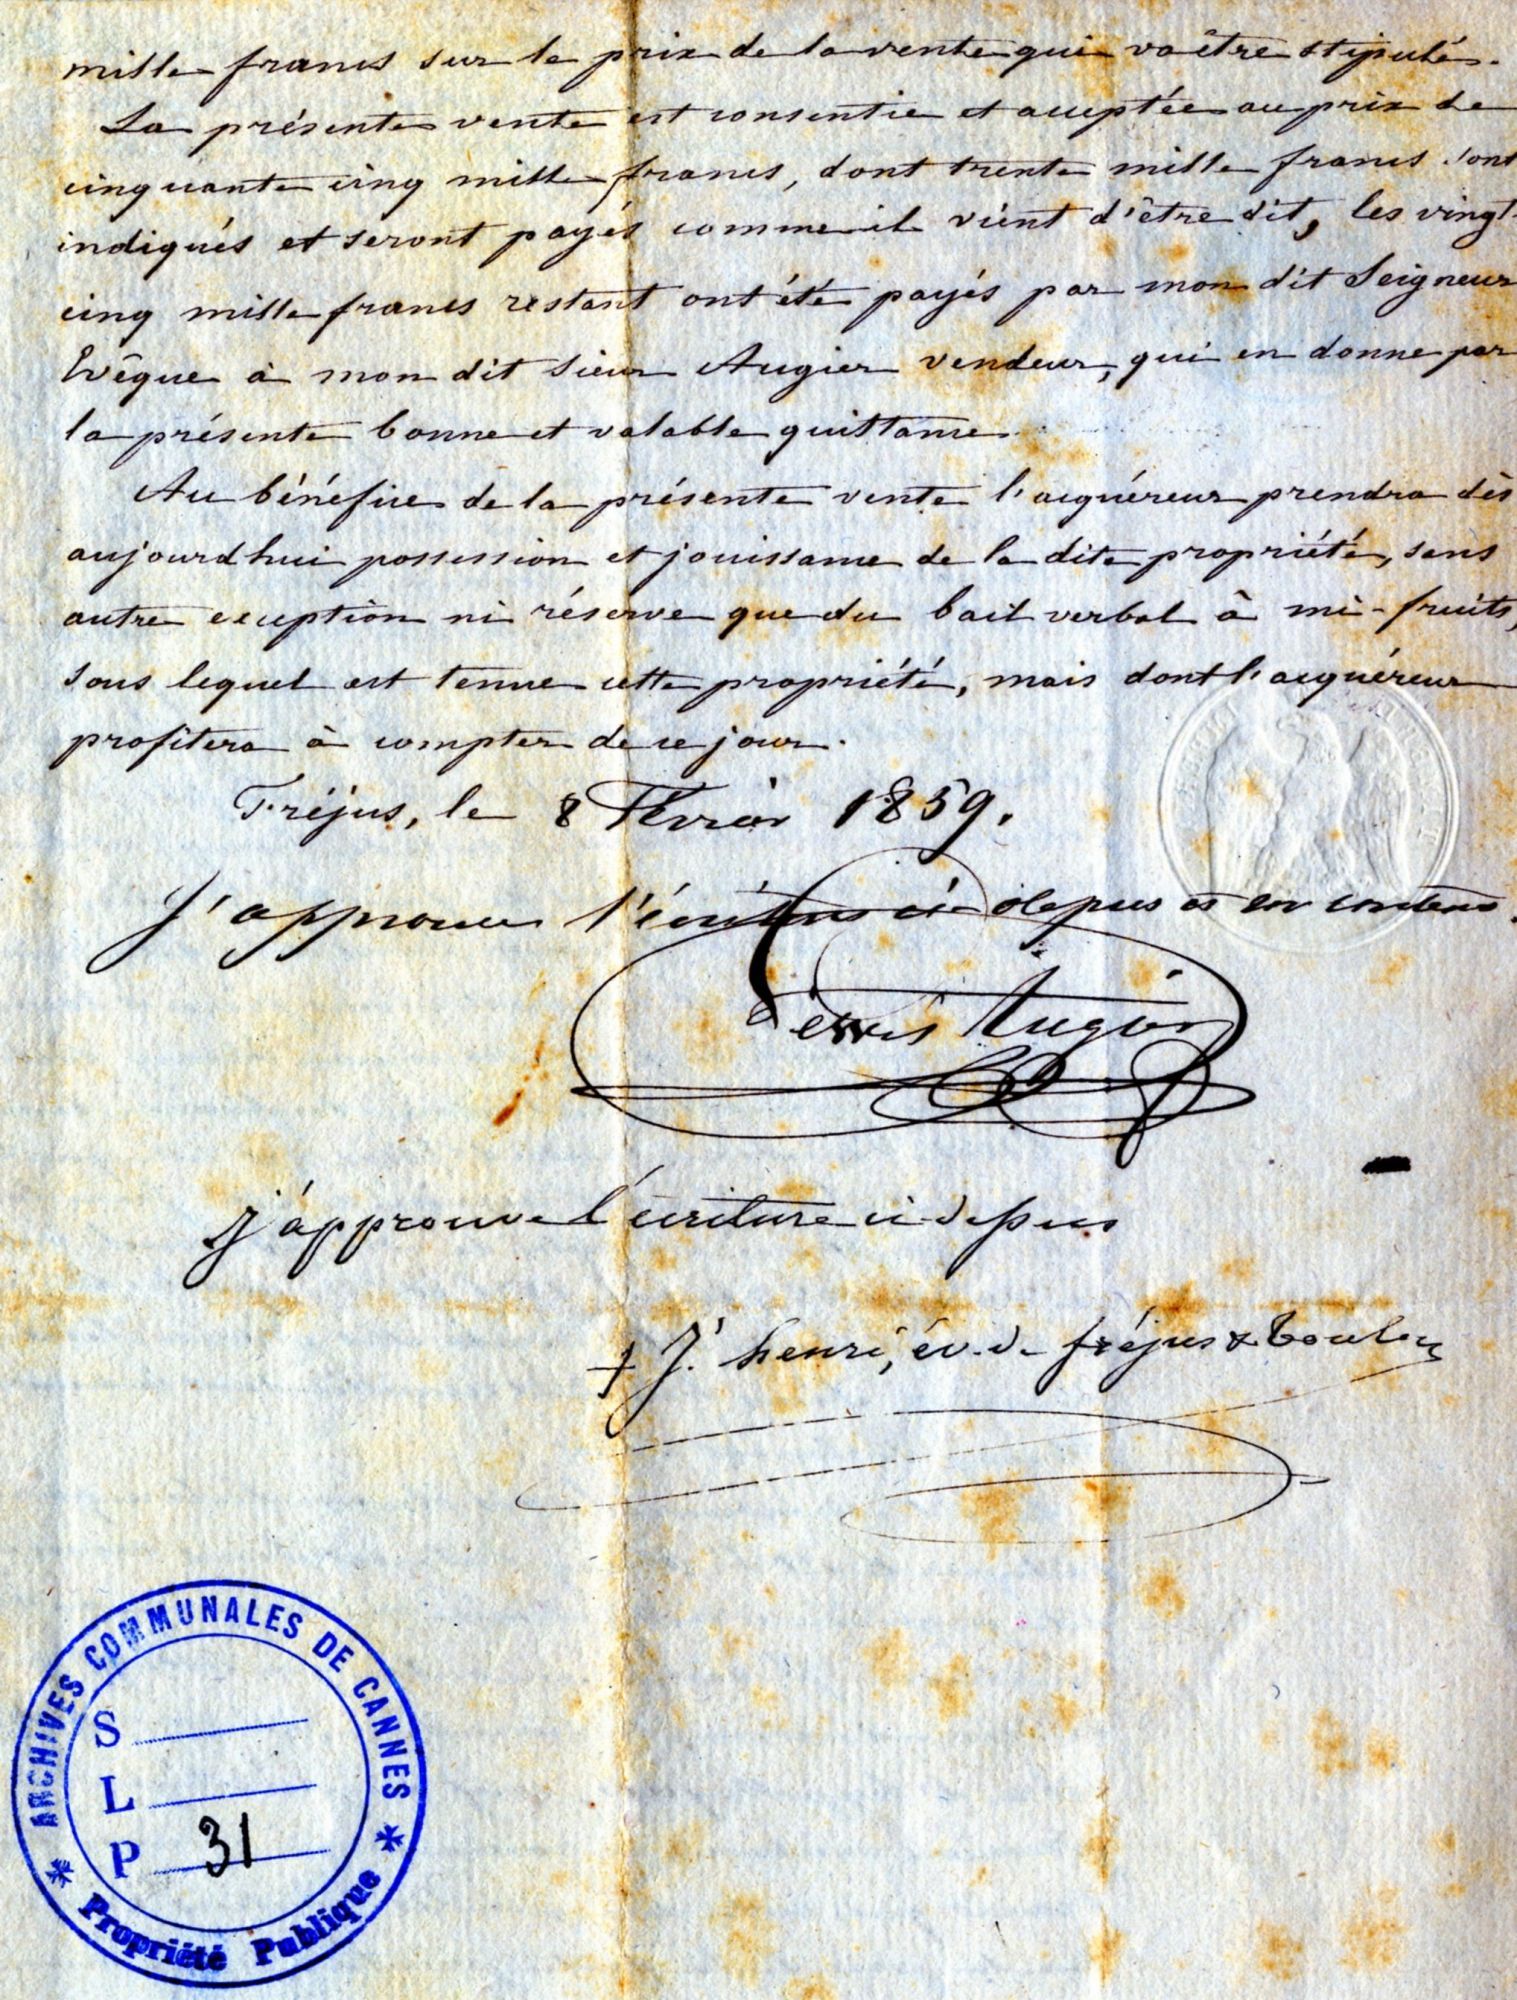 mille francs sur le prix de la vente qui va être stipulés.
La présente vente est consentie et acceptée au prix de
cinquante cinq mille francs, dont trente mille francs sont
indiqués et seront payés comme il vient d'être dit, les vingt-
cinq mille francs restant ont été payés par mon dit Seigneur
Evêque à mon dit sieur Augier vendeur, qui en donne par
la présente bonne et valable quittance.
Au bénéfice de la présente vente l'acquéreur prendra dès
aujourd'hui possession et jouissance de la dite propriété, sans
autre exception ni réserve que du bail verbal à mi-fruits,
sous lequel est tenue cette propriété, mais dont l'acquéreur
profitera à compter de ce jour.
Fréjus, le 8 Février 1859.
J'approuve l'écriture ci depus et son contenu.
Augier
j'approuve l'écriture ci-dessus
+ J. henri, év. de fréjus & toulon
ARCHIVES COMMUNALES DE CANNES
S
L
P 31
Propriété Publique